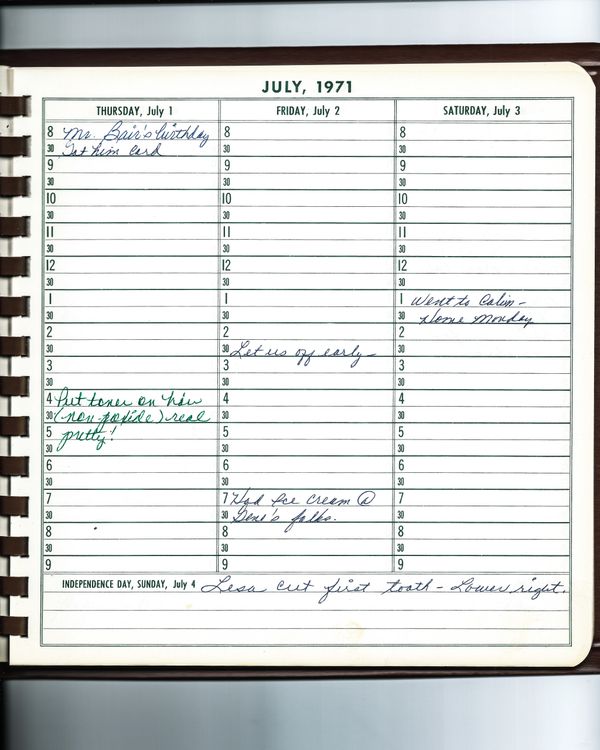 JULY, 1971
THURSDAY, July 1
8 Mr. Bair's birthday
30 Got him card
9
30
10
30
11
30
12
30
1
30
2
30
3
30
4 Put toner on hair
30 (non-poxide) real
5 pretty!
30
6
30
7
30
8
30
9
FRIDAY, July 2
8
30
9
30
10
30
11
30
12
30
1
30
2
30 Let us off early –
3
30
4
30
5
30
6
30
7 Had Ice Cream @
30 Gene's folks.
8
30
9
SATURDAY, July 3
8
30
9
30
10
30
11
30
12
30
1 Went to –
30 Home Monday
2
30
3
30
4
30
5
30
6
30
7
30
8
30
9
INDEPENDENCE DAY, SUNDAY, July 4 Lesa cut first tooth – Lower right.